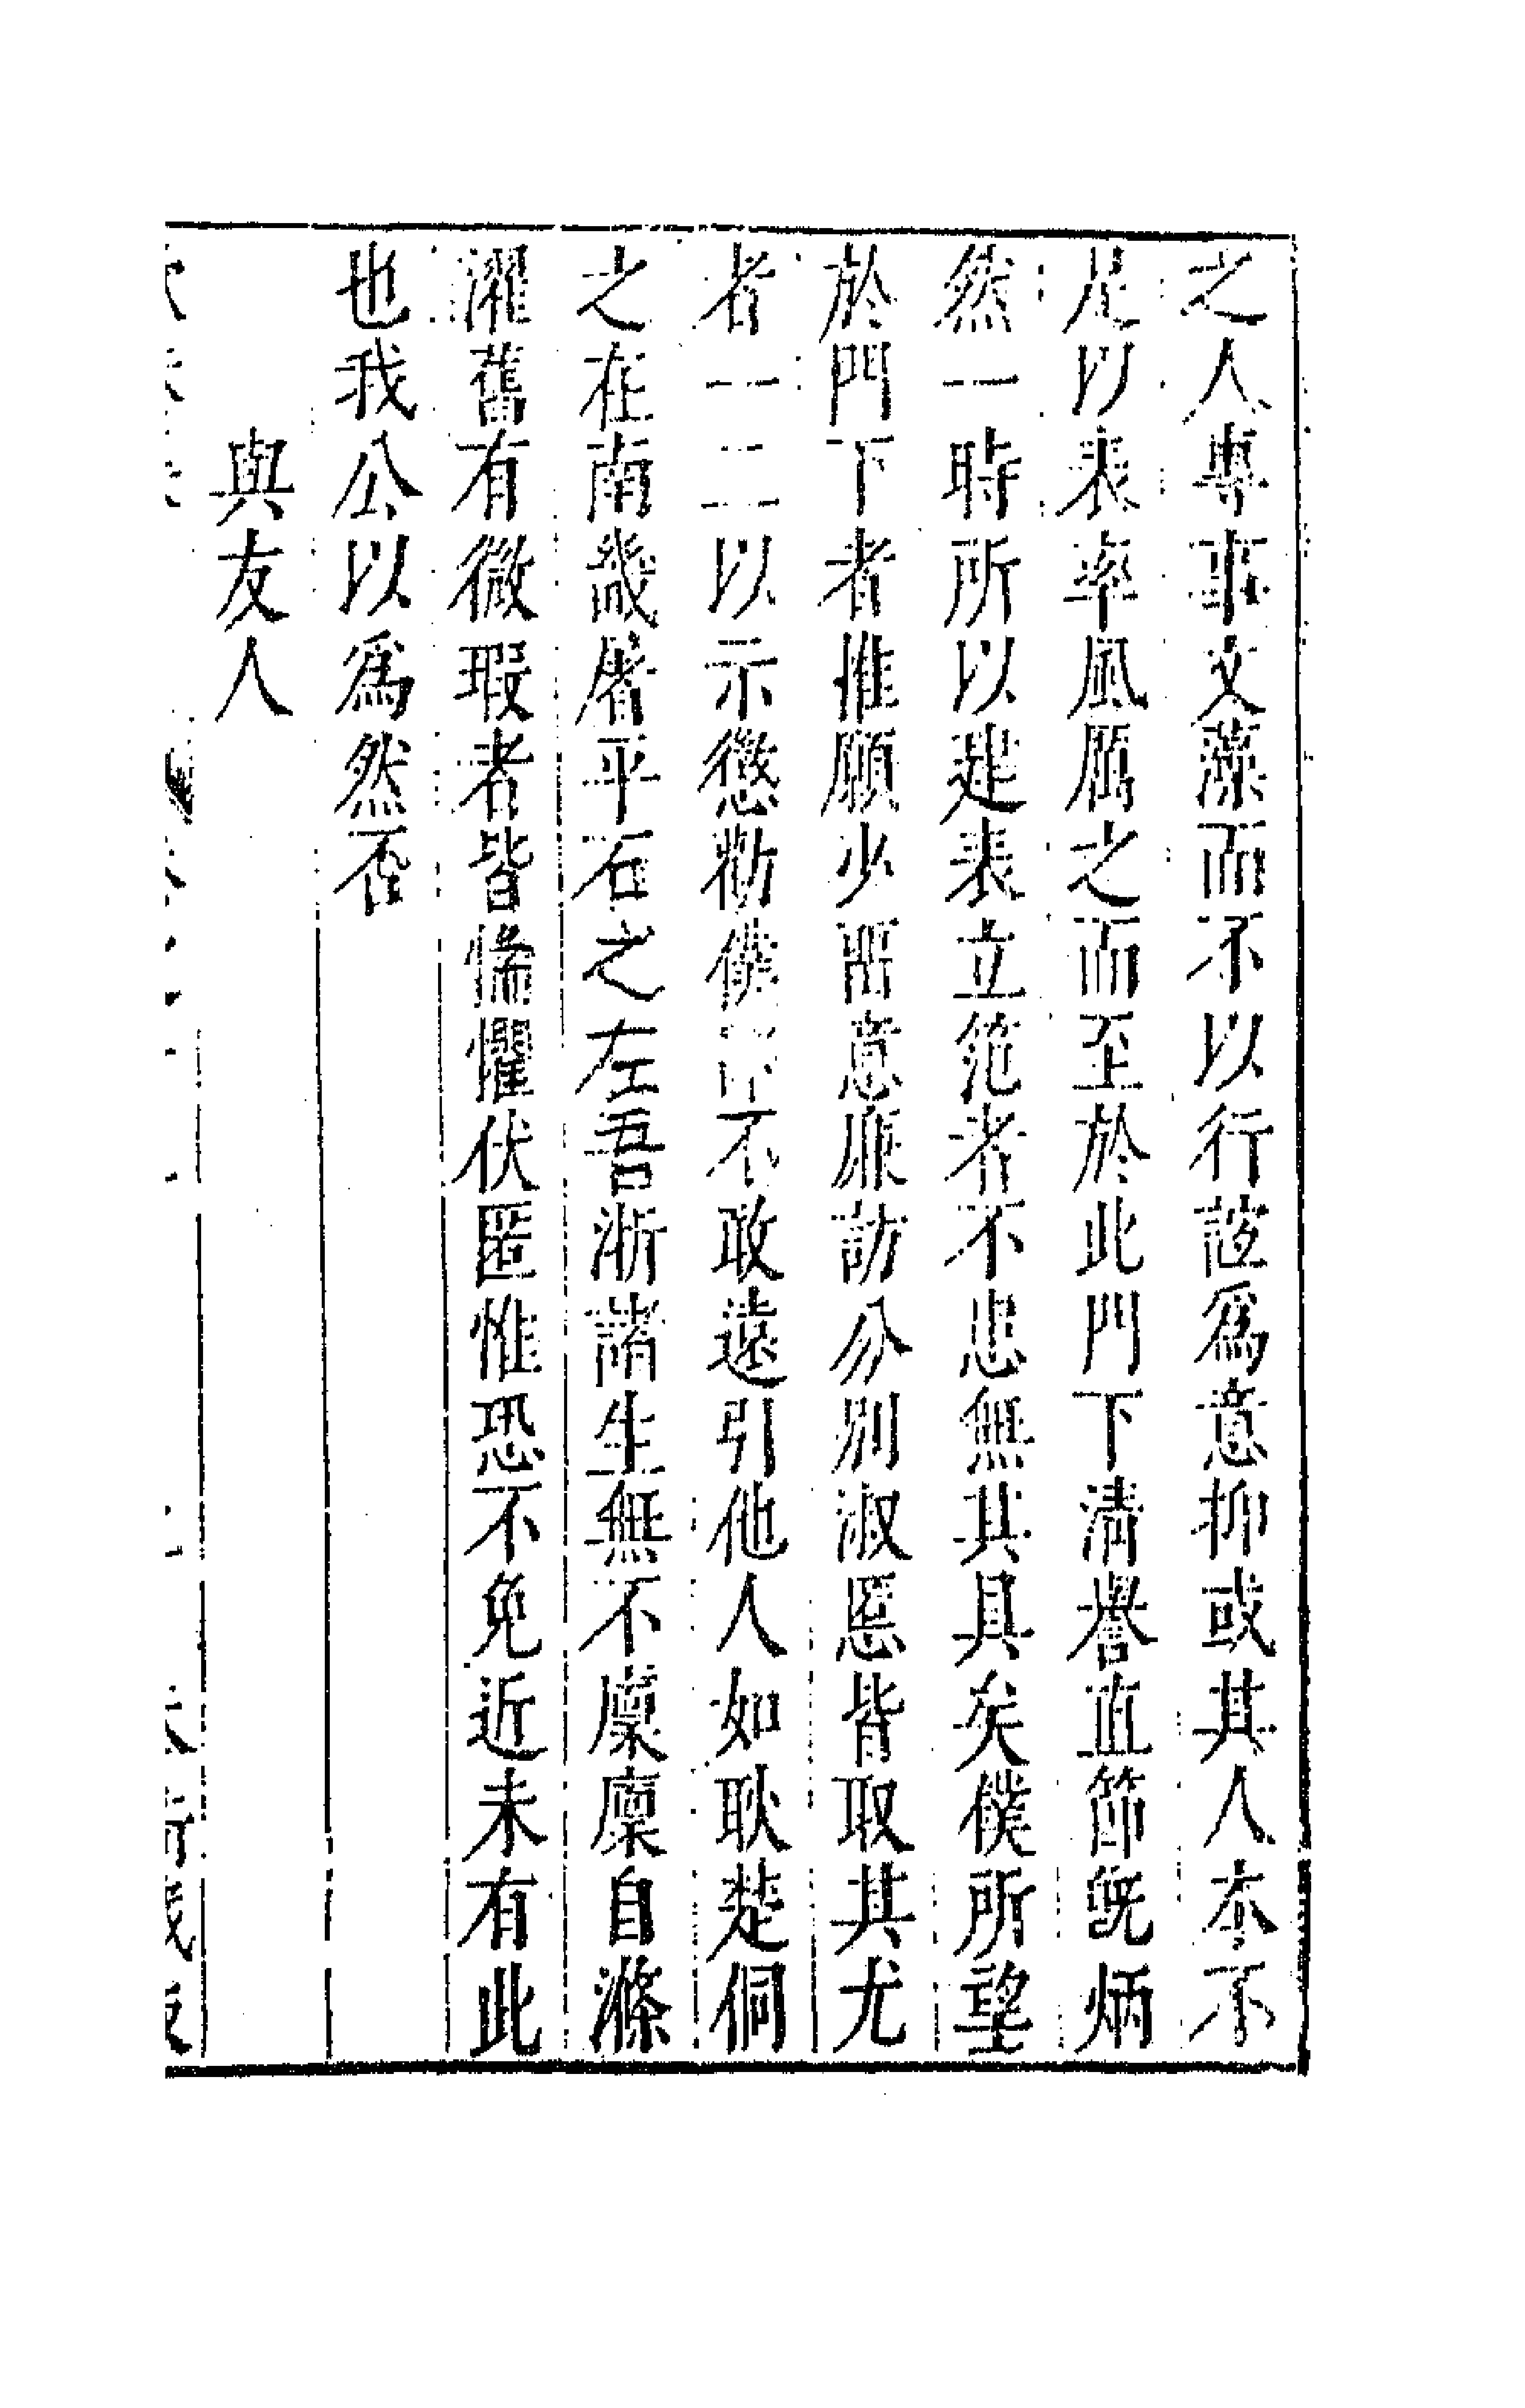 之人專事文藻而不以行誼爲意抑或其人本不
足以表率風厲之而至於此門下清譽直節旣炳
然一時所以建表立范者不患無其具矣僕所望
於門下者惟願少畱意廉訪分別淑慝皆取其尤
者一二以示懲勸僕不敢遠引他人如耿楚侗
之在南畿屠平石之左吾浙諸生無不廩廩自滌
濯舊有微瑕者皆惴懼伏匿惟恐不免近未有此
也我公以爲然否
與友人